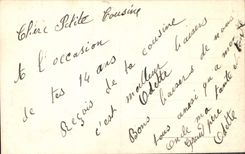 Chère Petite Cousine
A l'occasion
de tes 14 ans
Reçois de ta cousine
c'est meilleurs baisers
Odette
Bons baisers de nous
tous ainsi qu'a mon
Oncle ma tante et
Grand père
Odette